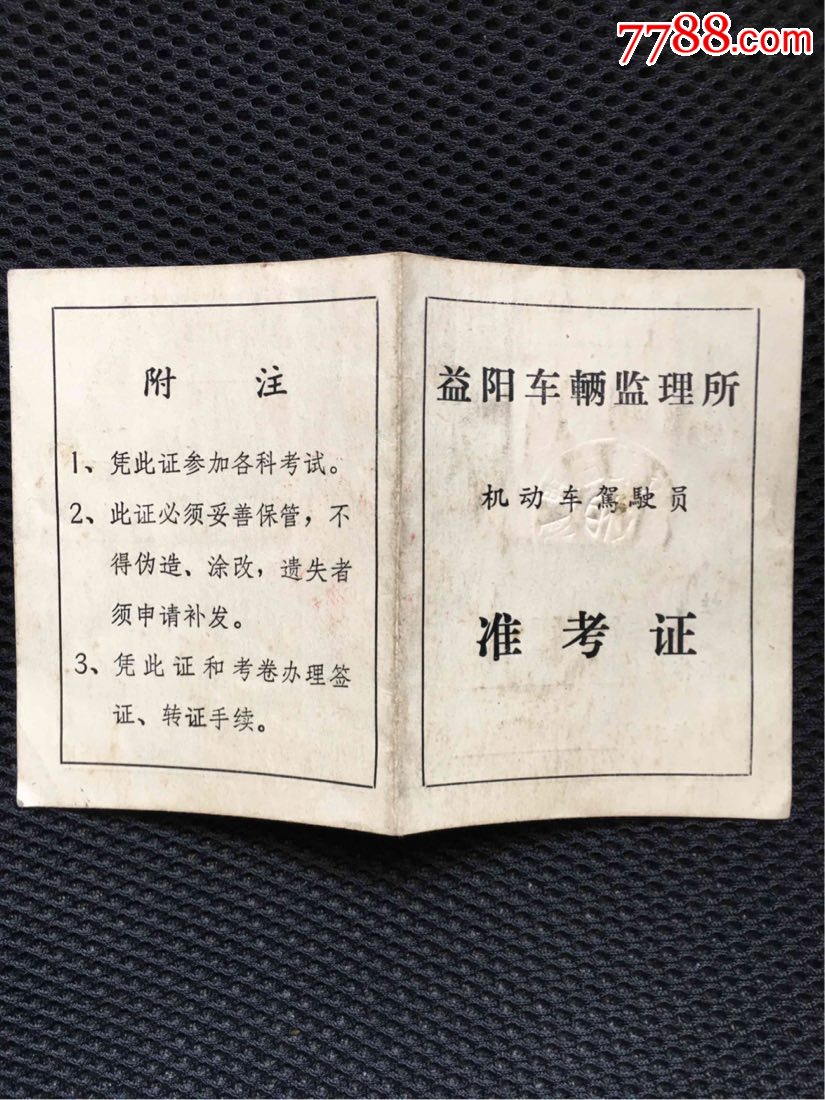 7788.com
附 注
1、凭此证参加各科考试。
2、此证必须妥善保管，不
得伪造、涂改，遗失者
须申请补发。
3、凭此证和考卷办理签
证、转证手续。
益阳车輛监理所
机动车駕駛员
准考证